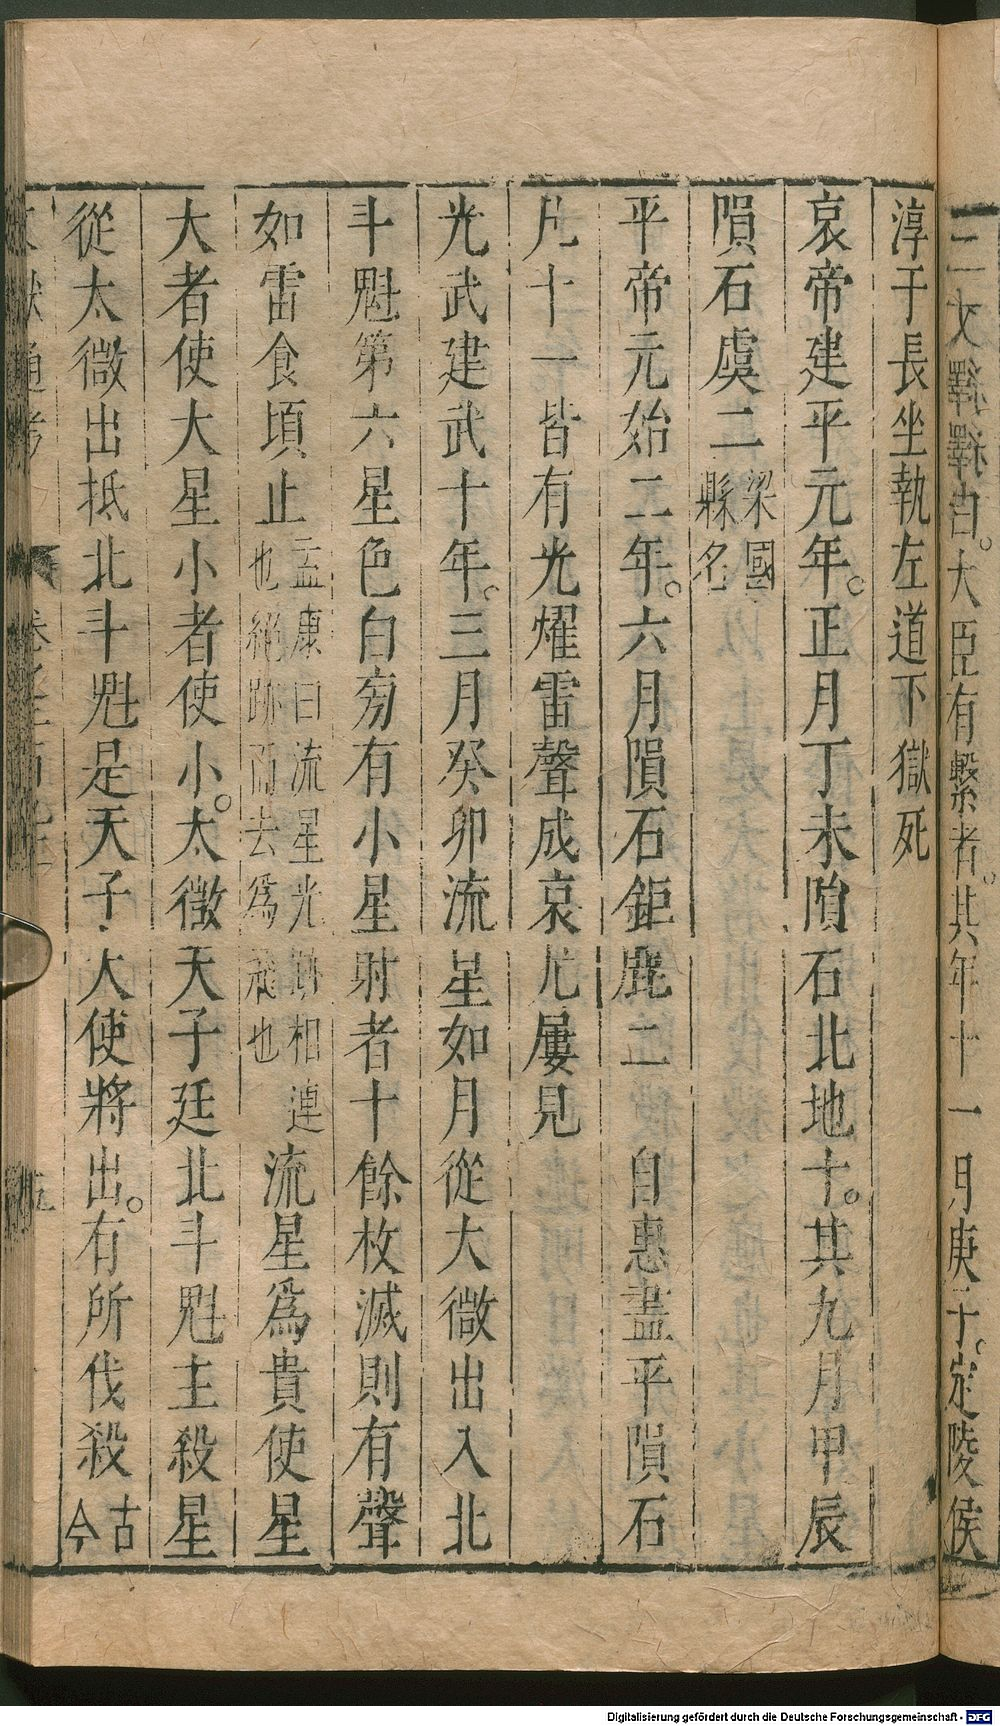 二丈繹繹告。大臣有繫者。其年十一月庚子。定陵侯
淳于長坐執左道下獄死
哀帝建平元年。正月丁未隕石北地十。其九月甲辰
隕石虞二梁國縣名
平帝元始二年。六月隕石鉅鹿二 自惠盡平隕石
凡十一皆有光燿雷聲成哀尤屢見
光武建武十年。三月癸卯流星如月從太微出入北
斗魁第六星色白旁有小星射者十餘枚滅則有聲
如雷食頃止孟康曰流星光跡相連也絕跡而去為飛也流星為貴使星
大者使大星小者使小。太微天子廷北斗魁主殺星
從太微出抵北斗魁是天子大使將出。有所伐殺古今
文獻通考
Digitalisierung gefördert durch die Deutsche Forschungsgemeinschaft - DFG